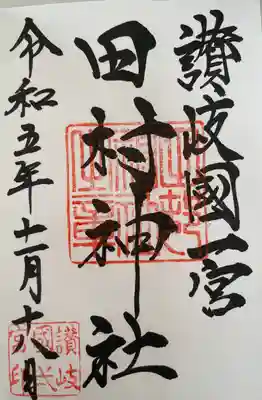 讃岐國一宮
田村神社
令和五年十一月十八日